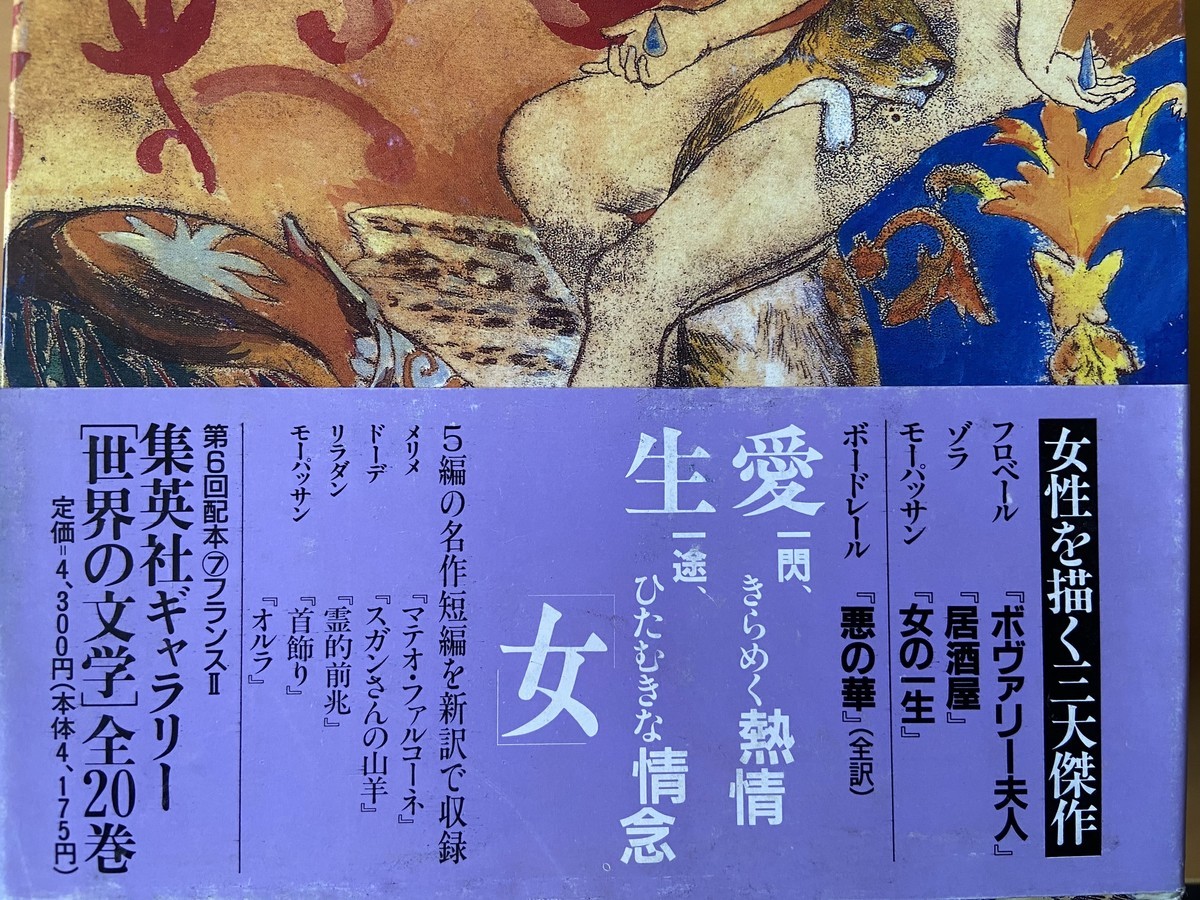 女性を描く三大傑作
フロベール 『ボヴァリー夫人』
ゾラ 『居酒屋』
モーパッサン 『女の一生』
ボードレール 『悪の華』（全訳）
愛一閃、きらめく熱情
生一途、ひたむきな情念。
「女」
5編の名作短編を新訳で収録
メリメ 『マテオ・ファルコーネ』
ドーデ 『スガンさんの山羊』
リラダン 『霊的前兆』
モーパッサン 『首飾り』
『オルラ』
第6回配本⑦フランスⅡ
集英社ギャラリー
［世界の文学］全20巻
定価=4,300円（本体4,175円）